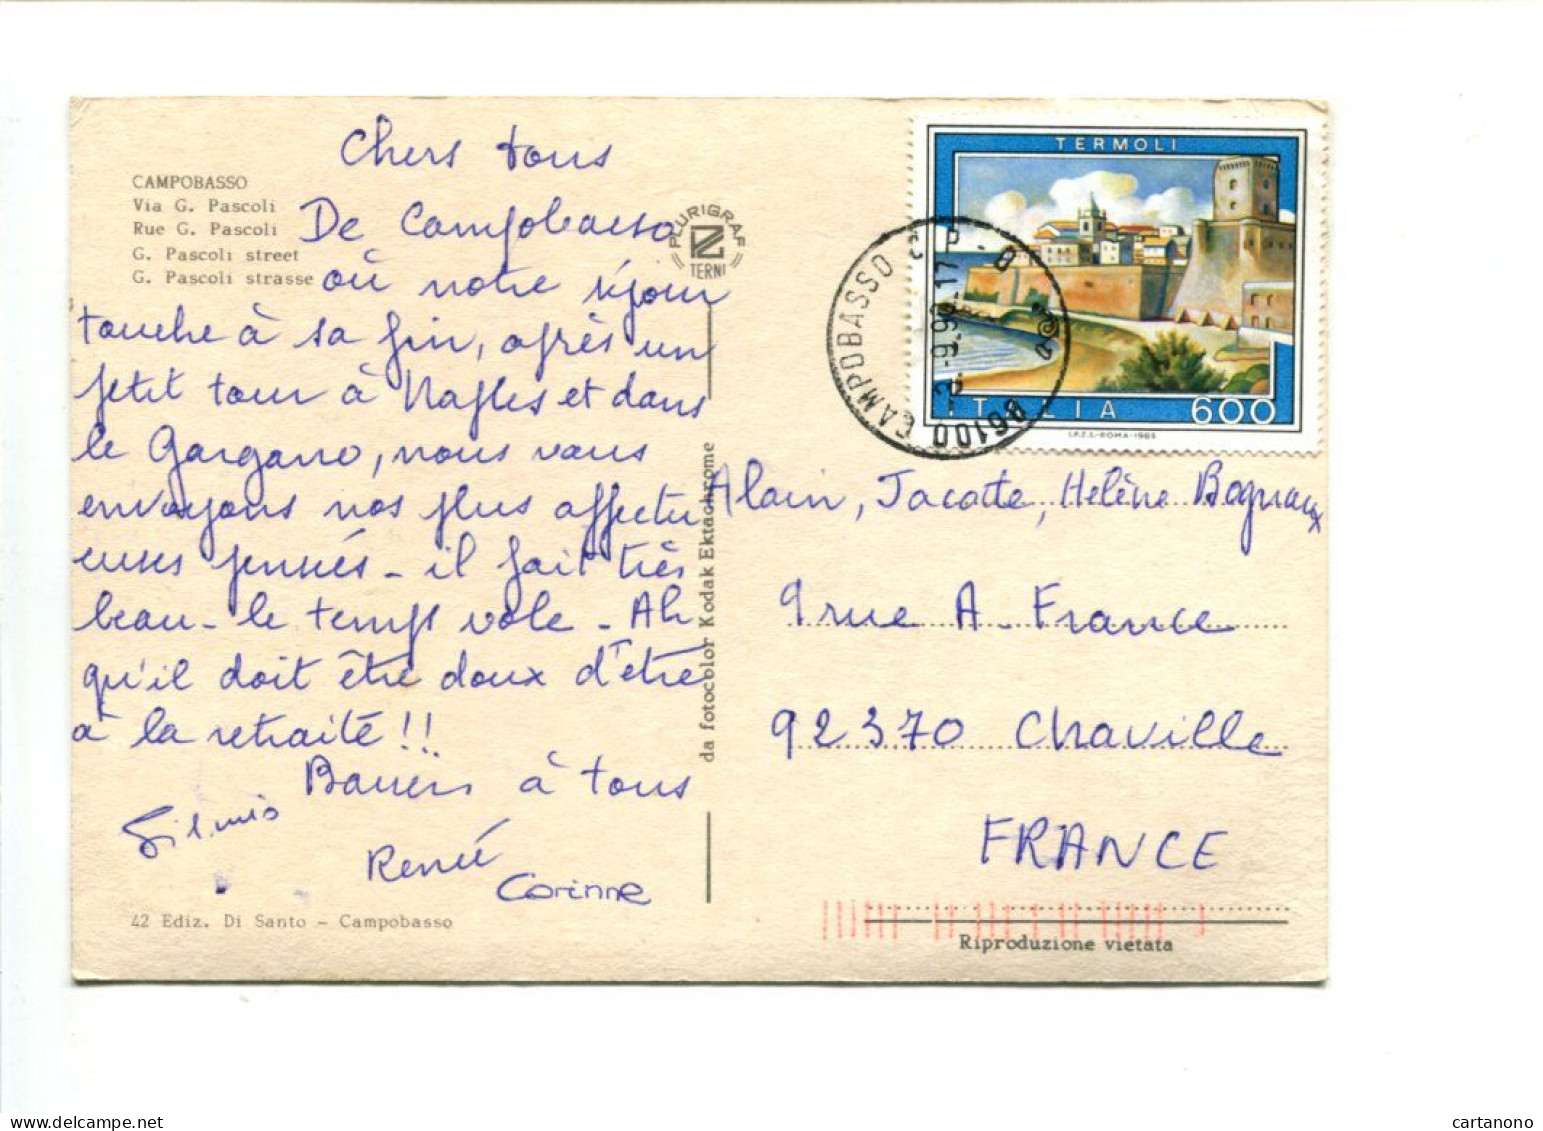 CAMPOBASSO
Via G. Pascoli
Rue G. Pascoli
G. Pascoli street
G. Pascoli strasse
Chers tous
De Campobasso
où notre séjour
touche à sa fin, après un
petit tour à Naples et dans
le Gargano, nous vous
envoyons nos plus affectu
euses pensées - il fait très
beau - le temps vole - Ah
qu'il doit être doux d'être
à la retraite !!
Baisers à tous
Silvio
Renée
Corinne
42 Ediz. Di Santo - Campobasso
PLURIGRAF
TERNI
da fotocolor Kodak Ektachrome
TERMOLI
ITALIA 600
I.P.Z.S.-ROMA-1985
86100 CAMPOBASSO C.P.
2.-9.90.17
Alain, Jacotte, Hélène Bognaux
9 rue A. France
92370 Chaville
FRANCE
Riproduzione vietata
cartanono